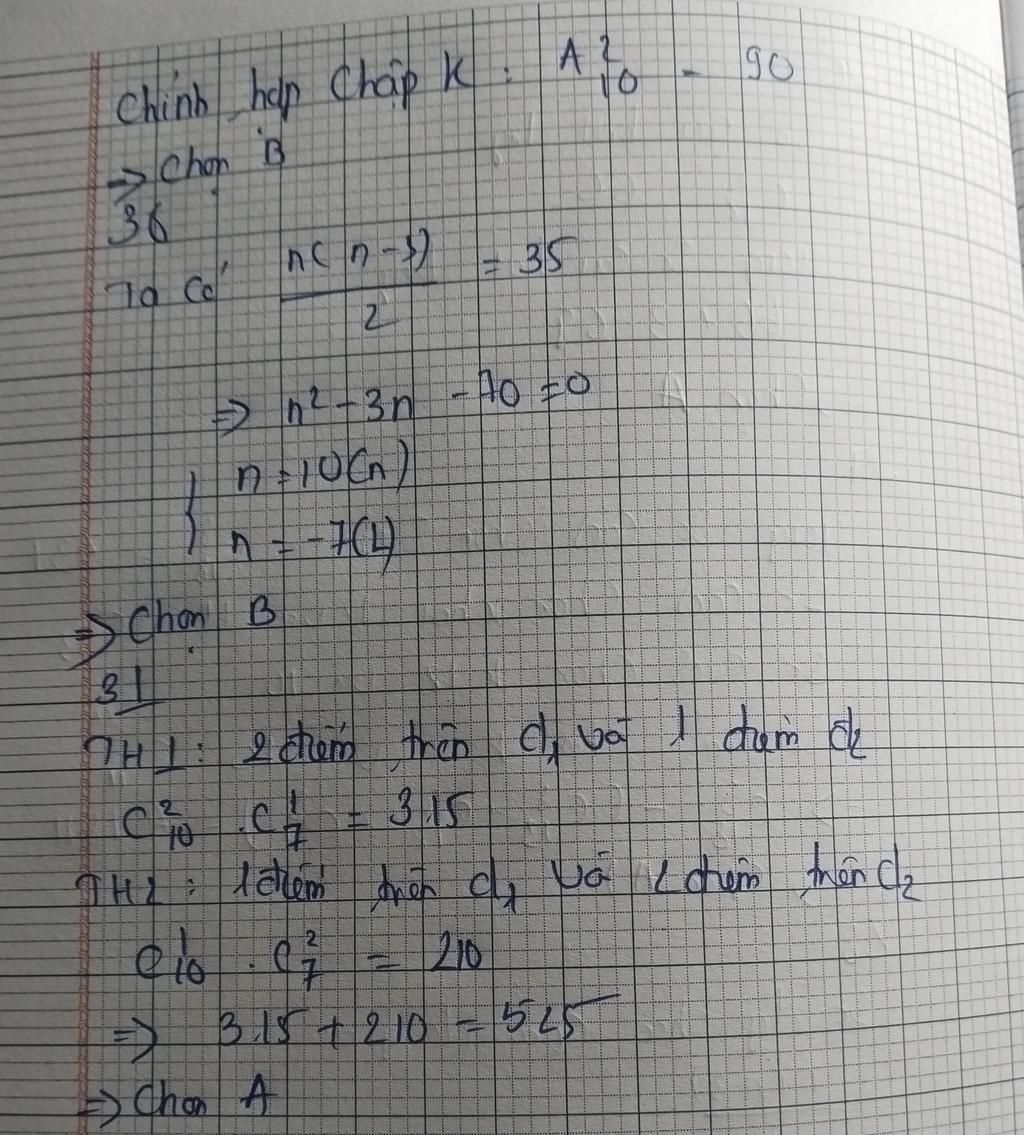 Chỉnh hợp Chập K : A²₁₀ = 90
=> Chọn B
36
Ta có n(n-3)/2 = 35
=> n² - 3n - 70 = 0
{ n = 10(n)
n = -7(L)
=> Chọn B
31
TH1: 2 điểm trên d₁ và 1 điểm d₂
C²₁₀ . C¹₇ = 315
TH2 : 1 điểm trên d₁ và 2 điểm trên d₂
C¹₁₀ . C²₇ = 210
=> 315 + 210 = 525
=> Chọn A